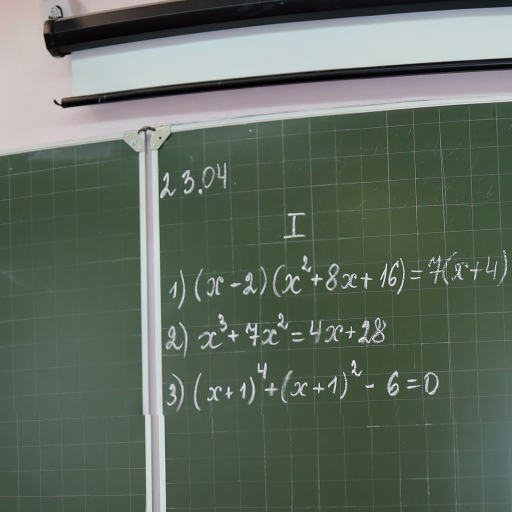 23.04
I
1) (x-2)(x²+8x+16)=7(x+4)
2) x³+7x²=4x+28
3) (x+1)⁴+(x+1)²-6=0